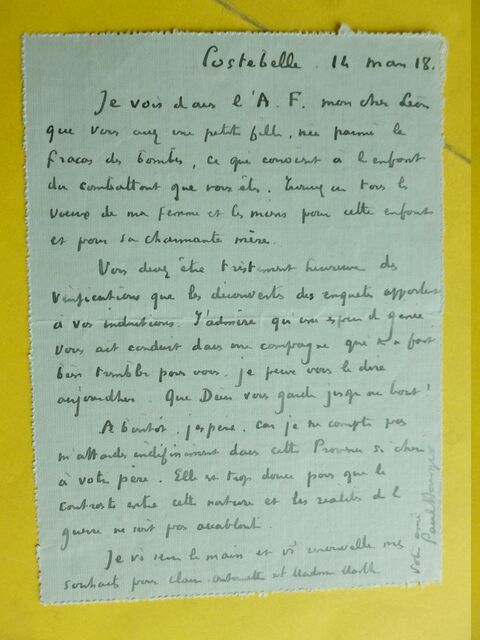 Costebelle. 14 mars 18.
Je vois dans l'A. F. mon cher Léon
que vous avez une petite fille, née parmi le
fracas des bombes, ce qui convient à l'enfant
du combattant que vous êtes. Trouvez ici tous les
vœux de ma femme et les miens pour cette enfant
et pour sa charmante mère.
Vous devez être tristement heureux des
vérifications que les découvertes des enquêtes apportent
à vos inductions. J'admire qu'une espèce de génie
vous ait conduit dans une campagne qui m'a fait
bien trembler pour vous. je peux vous le dire
aujourd'hui. Que Dieu vous garde jusqu'au bout!
A bientôt, j'espère, car je ne compte pas
m'attarder indéfiniment dans cette Provence si chère
à votre père. Elle est trop douce pour que le
contraste entre cette nature et les réalités de la
guerre ne soit pas accablant.
Je vous serre la main et vous renouvelle mes
souhaits pour claire-antoinette et Madame Marthe
Votre ami
Paul Bourget